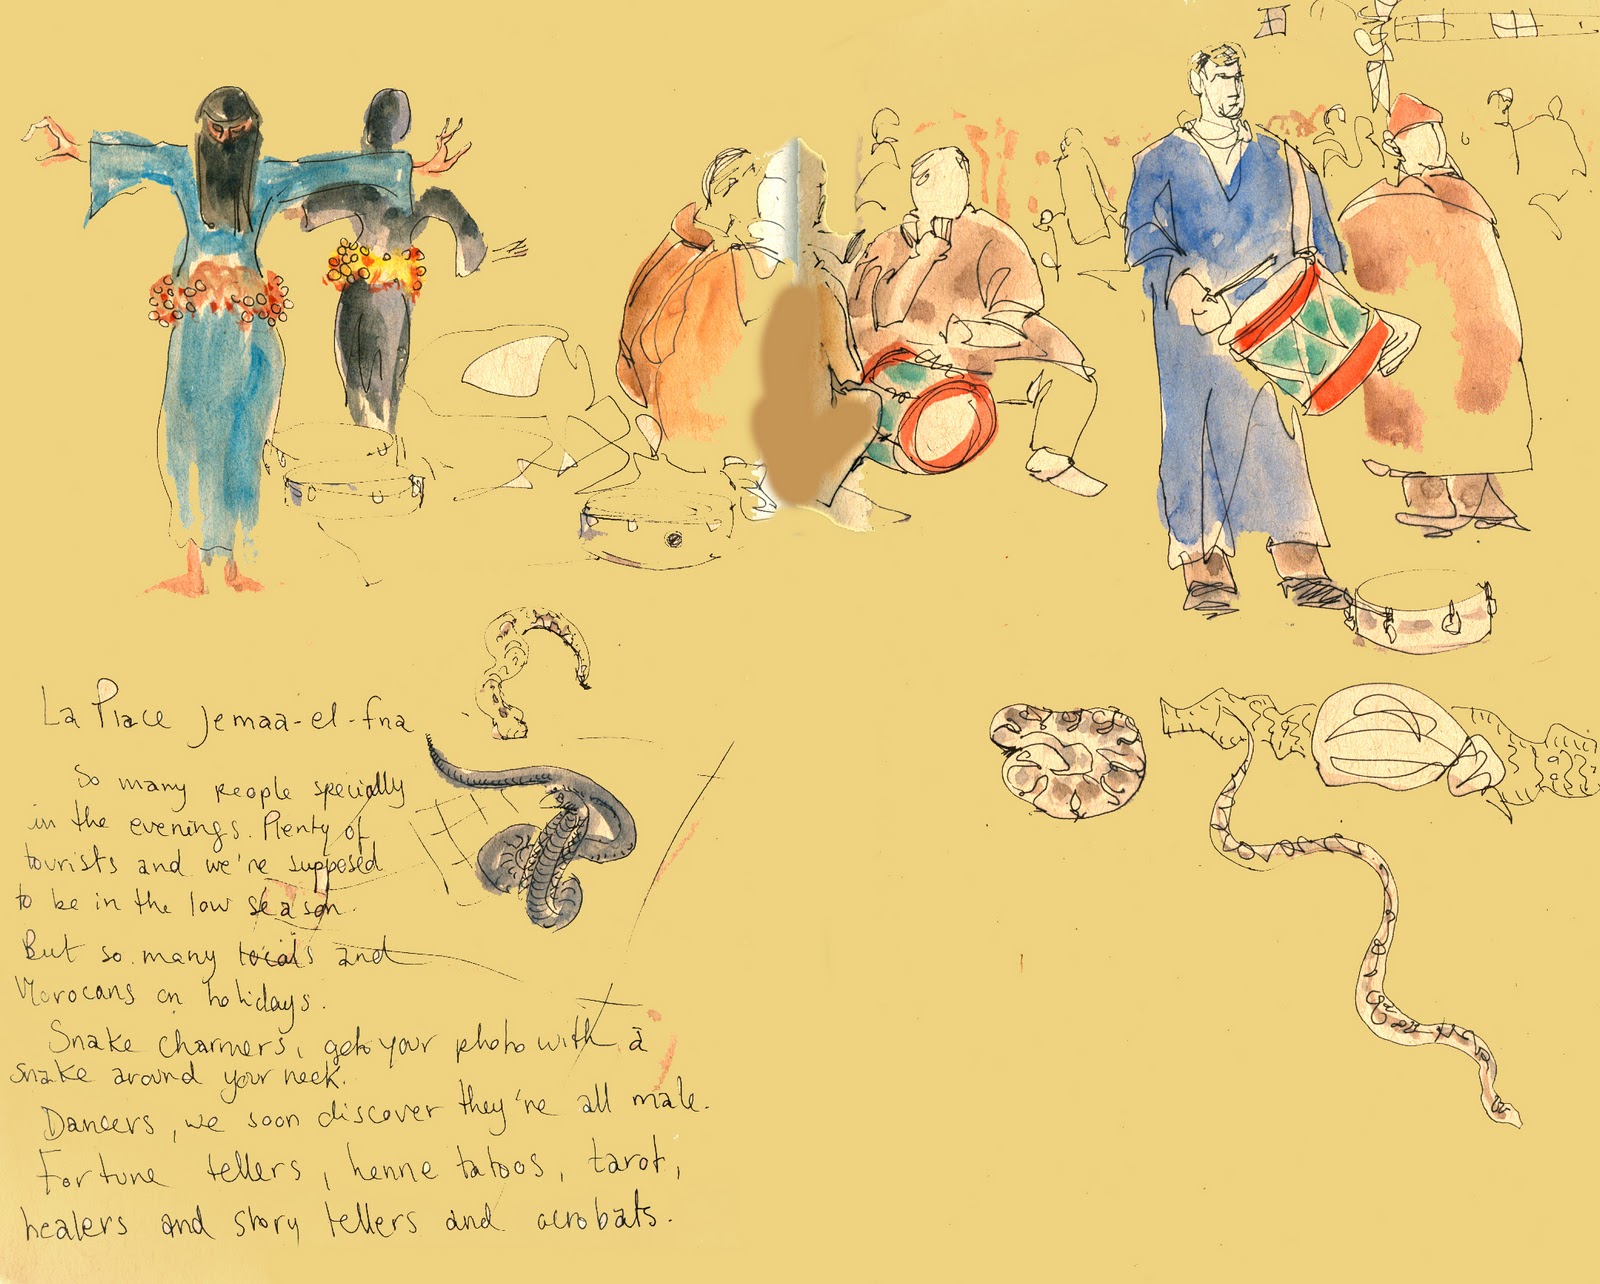 La Place Jemaa-el-fna
So many people specially
in the evenings. Plenty of
tourists and we're supposed
to be in the low season.
But so many locals and
Morocans on holidays.
Snake charmers, get your photo with a
snake around your neck.
Dancers, we soon discover they're all male.
Fortune tellers, henne tatoos, tarot,
healers and story tellers and acrobats.